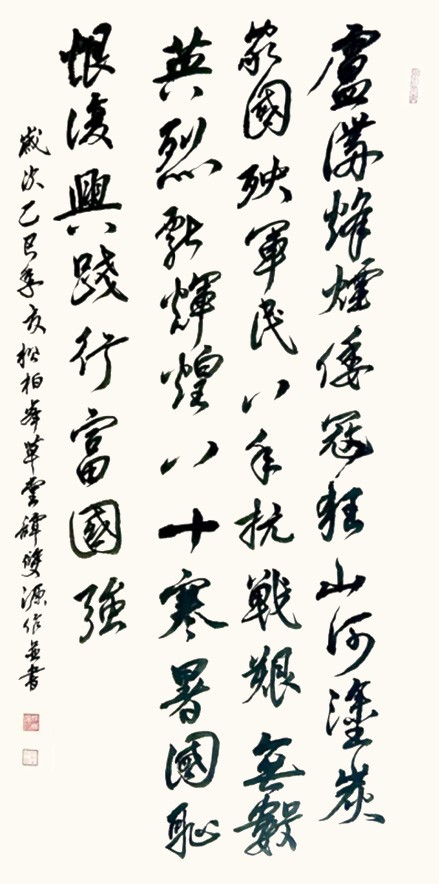 盧溝烽煙倭寇狂山河塗炭
家國殃軍民八年抗戰艱無數
英烈輝煌八十寒暑國恥
恨復興踐行富國強
歲次乙巳季夏松柏峯草堂譚雙源作並書